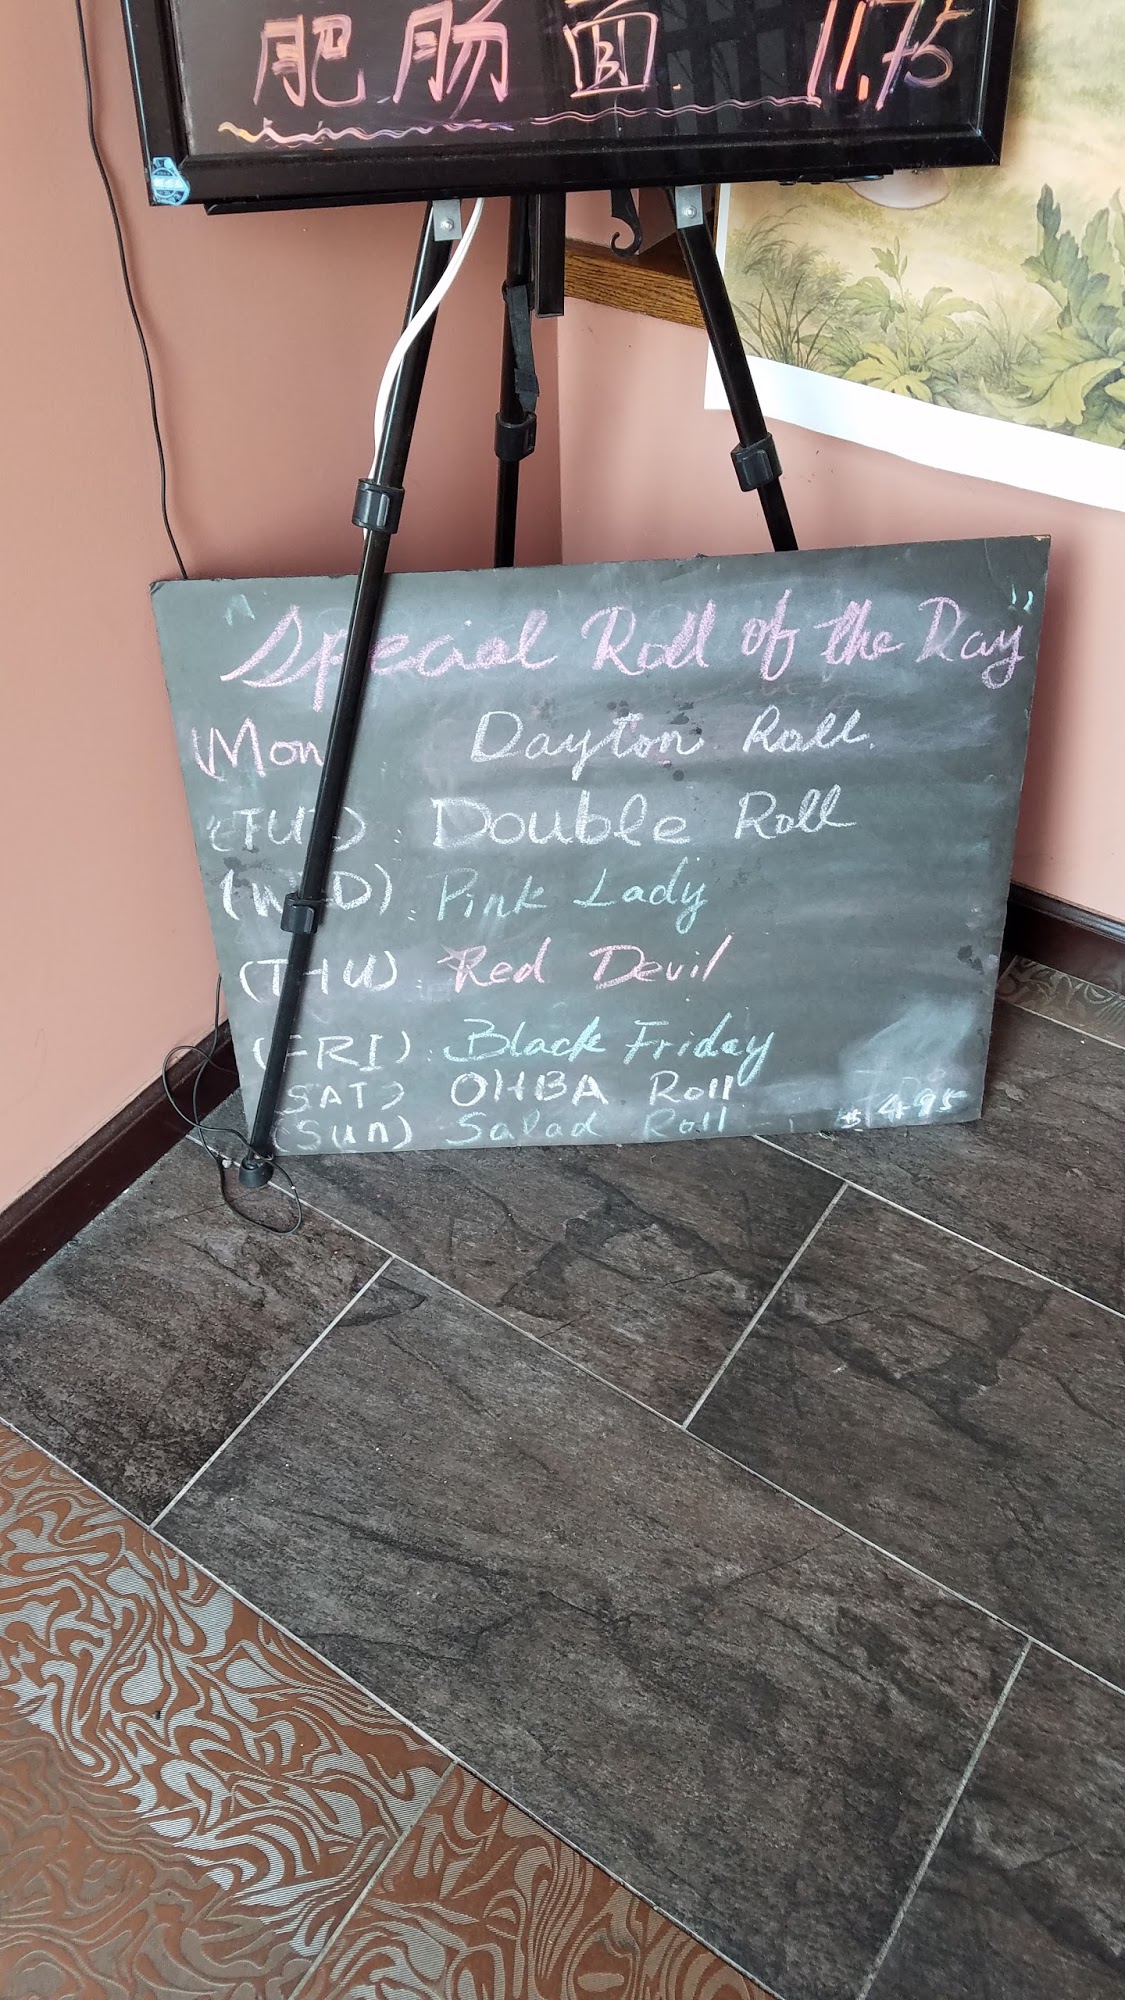 肥肠面 11.75
"Special Roll of the Day"
Mon Dayton Roll.
(TUE): Double Roll
(WED): Pink Lady
(THU): Red Devil
(FRI): Black Friday
(SAT) OHBA Roll
(Sun) Salad Roll $14.95